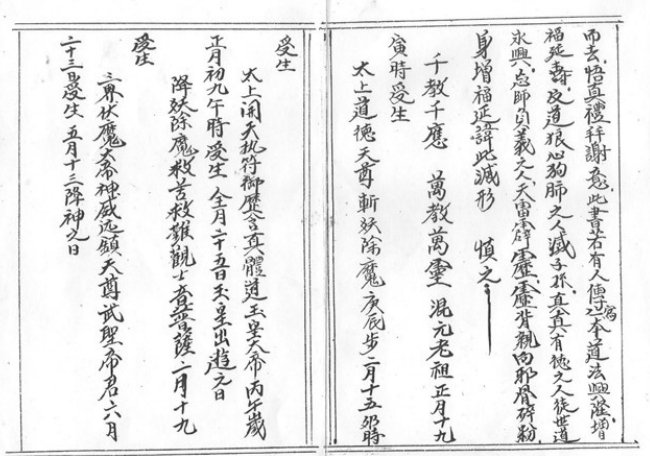 而去，悟真禮拜謝恩，此書若有人傳寫之本道法興隆增
福延壽，反道狼心狗肺之人滅子孫，直真有德之人徒世道
永興，忘師負義之人，天雷霹靂靈背親向邪骨碎粉
身增福延諱此滅形　慎之
千教千應　萬教萬靈　混元老祖正月十九
寅時受生
太上道德天尊斬妖除魔庚辰步二月十五卯時
受生
太上開天执符御歷含真體道玉皇大帝丙午歲
正月初九午時受生　仝月二十五日玉皇出遊之日
降妖除魔救苦救難觀士音菩薩二月十九
受生
三界伏魔大帝神威远鎮天尊武聖帝君六月
二十三日受生　五月十三降神之日